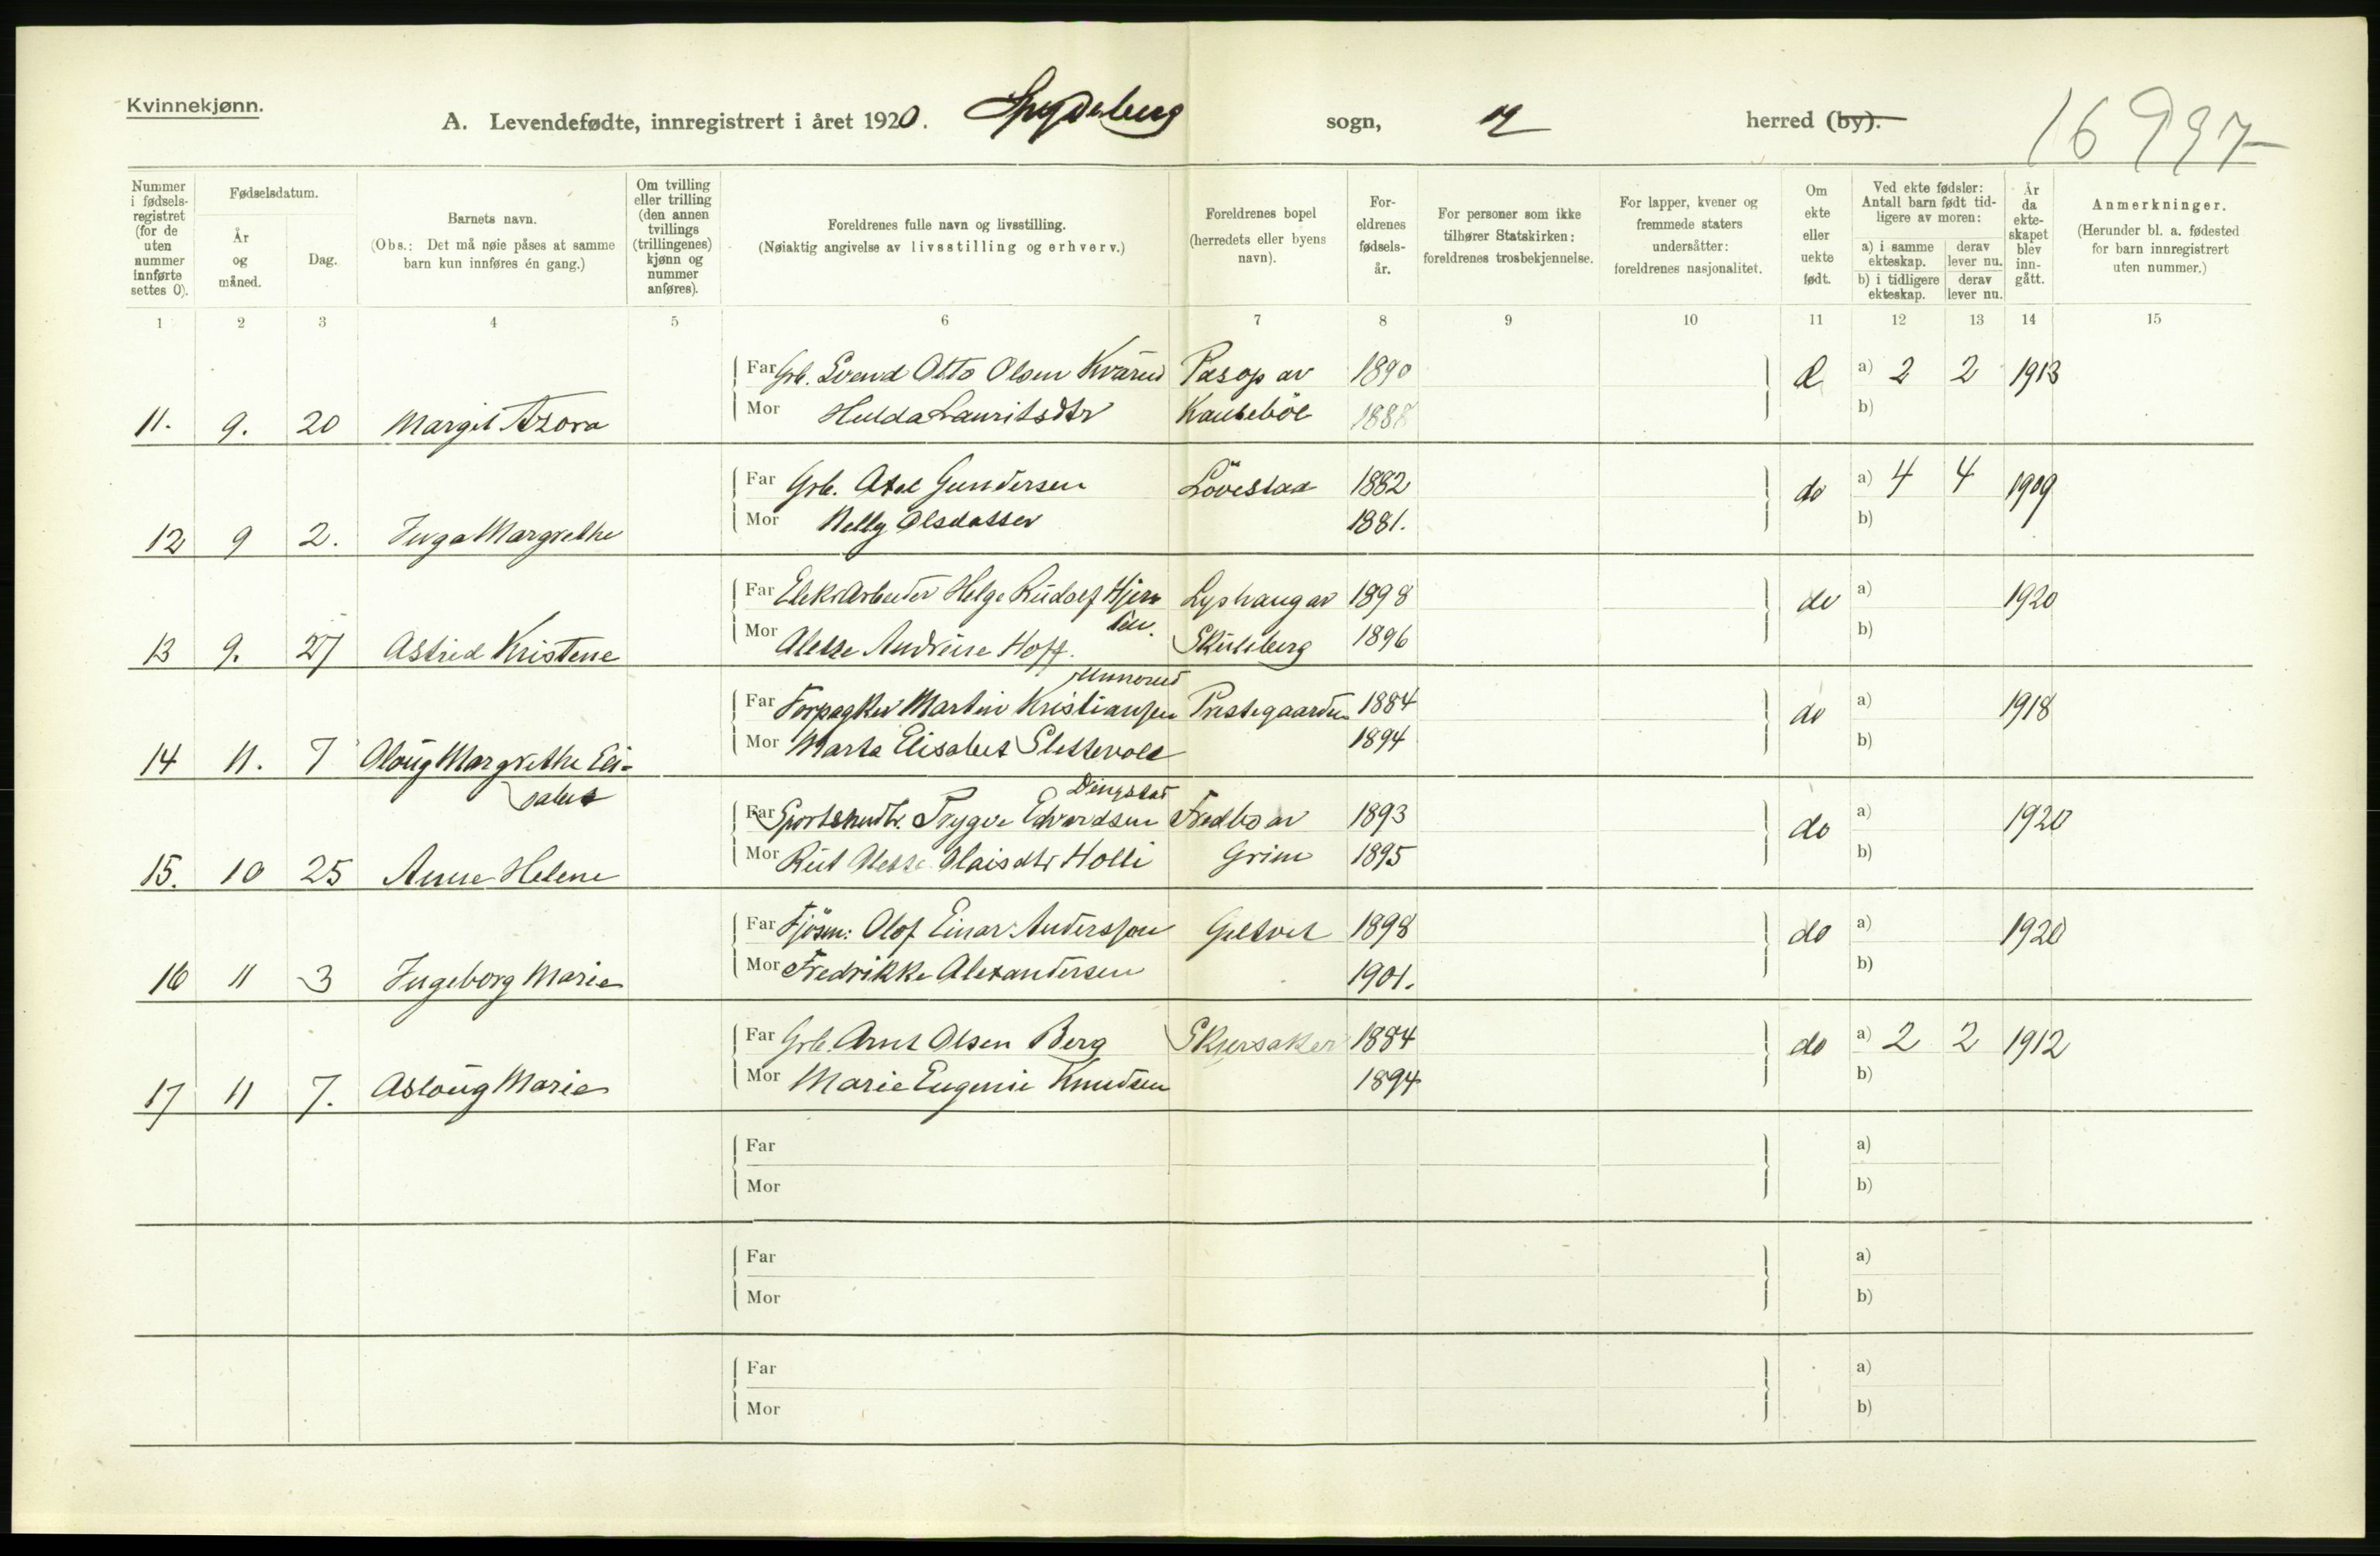 Kvinnekjønn.
A. Levendefødte, innregistrert i året 1920. Spydeberg sogn, herred (by).
16997
Nummer i fødsels-registret (for de uten nummer innførte settes 0).
Fødselsdatum.
År og måned.
Dag.
Barnets navn.
(Obs.: Det må nøie påses at samme barn kun innføres én gang.)
Om tvilling eller trilling (den annen tvillings (trillingenes) kjønn og nummer anføres).
Foreldrenes fulle navn og livsstilling.
(Nøiaktig angivelse av livsstilling og erhverv.)
Foreldrenes bopel (herredets eller byens navn).
For-eldrenes fødsels-år.
For personer som ikke tilhører Statskirken: foreldrenes trosbekjennelse.
For lapper, kvener og fremmede staters undersåtter: foreldrenes nasjonalitet.
Om ekte eller uekte født.
Ved ekte fødsler: Antall barn født tid-ligere av moren:
a) i samme ekteskap. derav lever nu.
b) i tidligere ekteskap. derav lever nu.
År da ekte-skapet blev inn-gått.
Anmerkninger.
(Herunder bl. a. fødested for barn innregistrert uten nummer.)
1 2 3 4 5 6 7 8 9 10 11 12 13 14 15
Far Grb. Svend Otto Olsen Kvärud Pasop av 1890 a) 2 2 1913
11. 9. 20 Margit Azora Mor Hulda Lauritsdtr 1888 b)
Far Grb. Axel Gundersen Lövestad 1882 do a) 4 4 1909
12 9 2. Inga Margrethe Mor Nelly Olsdatter 1881. b)
Far Elek. Arbeider Helge Rudolf Hjern Lyshaug av 1898 do a) 1920
13 9. 27 Astrid Kristene Mor Alette Andrine Hoff. Skuleberg 1896 b)
Far Forpagter Martin Kristiansen Prestegaarden 1884 do a) 1918
14 11. 7 Aloug Margrethe Eli- Mor Marta Elisabet Slettevold 1894 b)
sabet
Dingstad
Far Sportshndl. Trygve Edvardsen Fredbo av 1893 do a) 1920
15. 10 25 Anne Helene Mor Rut Alette Olaisdtr Holli Grim 1895 b)
Far Fjösm: Olof Einar Andersson Geltvet 1898 do a) 1920
16 11 3 Ingeborg Marie Mor Fredrikke Alexandersen 1901. b)
Far Grb. Arnt Olsen Berg Skjersaker 1884 do a) 2 2 1912
17 11 7. Asloug Marie Mor Marie Eugenie Knudsen 1894 b)
Far a)
Mor b)
Far a)
Mor b)
Far a)
Mor b)